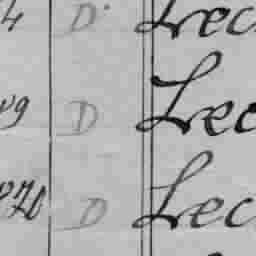 4 D. Lec
89 D Lec
870 D Lec